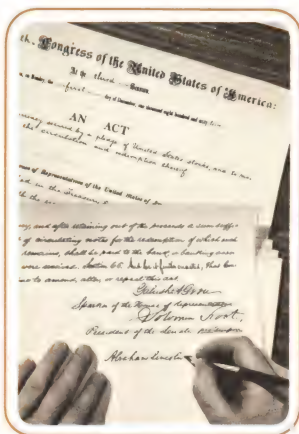 th, Congress of the United States of America:
At the third Session,
on Monday, the first day of December, one thousand eight hundred and sixty-two.
AN ACT
currency secured by a pledge of United States stocks, and to provide
the circulation and redemption thereof.
House of Representatives of the United States of Am
in the Treasury
and after retaining out of the proceeds a sum suffi
of circulating notes for the redemption of which such
shall be paid to the bank, or banking asso
were received. Section 65. And be it further enacted, That Con
to amend, alter, or repeal this act.
Galusha A Grow
Speaker of the House of Representatives
Solomon Foot,
President of the Senate pro tempore
Abraham Lincoln